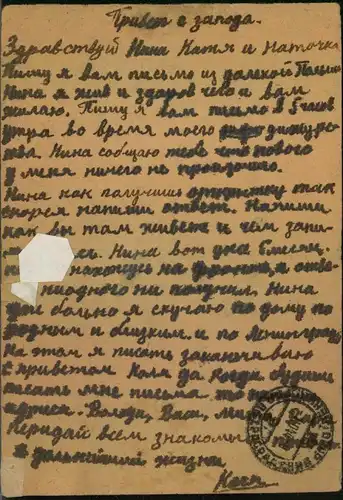 Привет с запода.
Здравствуй Нина Катя и Наточка
Пишу я вам письмо из далекой Польши
Нина я жив и здоров чего и вам
желаю. Пишу я вам письмо в 5 часов
утра во время моего дижурс
тва. Нина собщаю тебе что нового
у меня ничего не произошло.
Нина как получишь открытку так
скорея напиши ответ. Напиши
как вы там живете и чем зани
сь. Нина вот уже 6 месяц
нахожусь на фронте, а отве
ниодного ни получил. Нина
больно я скучаю по дому по
родным и близким. и по Ленинграду
На этом я писать заканчиваю
С приветом Коля да когда будиш
писать мне письма то
Володи, Васи,
Передай всем знакомы
в дальнейшей жизни
Коля